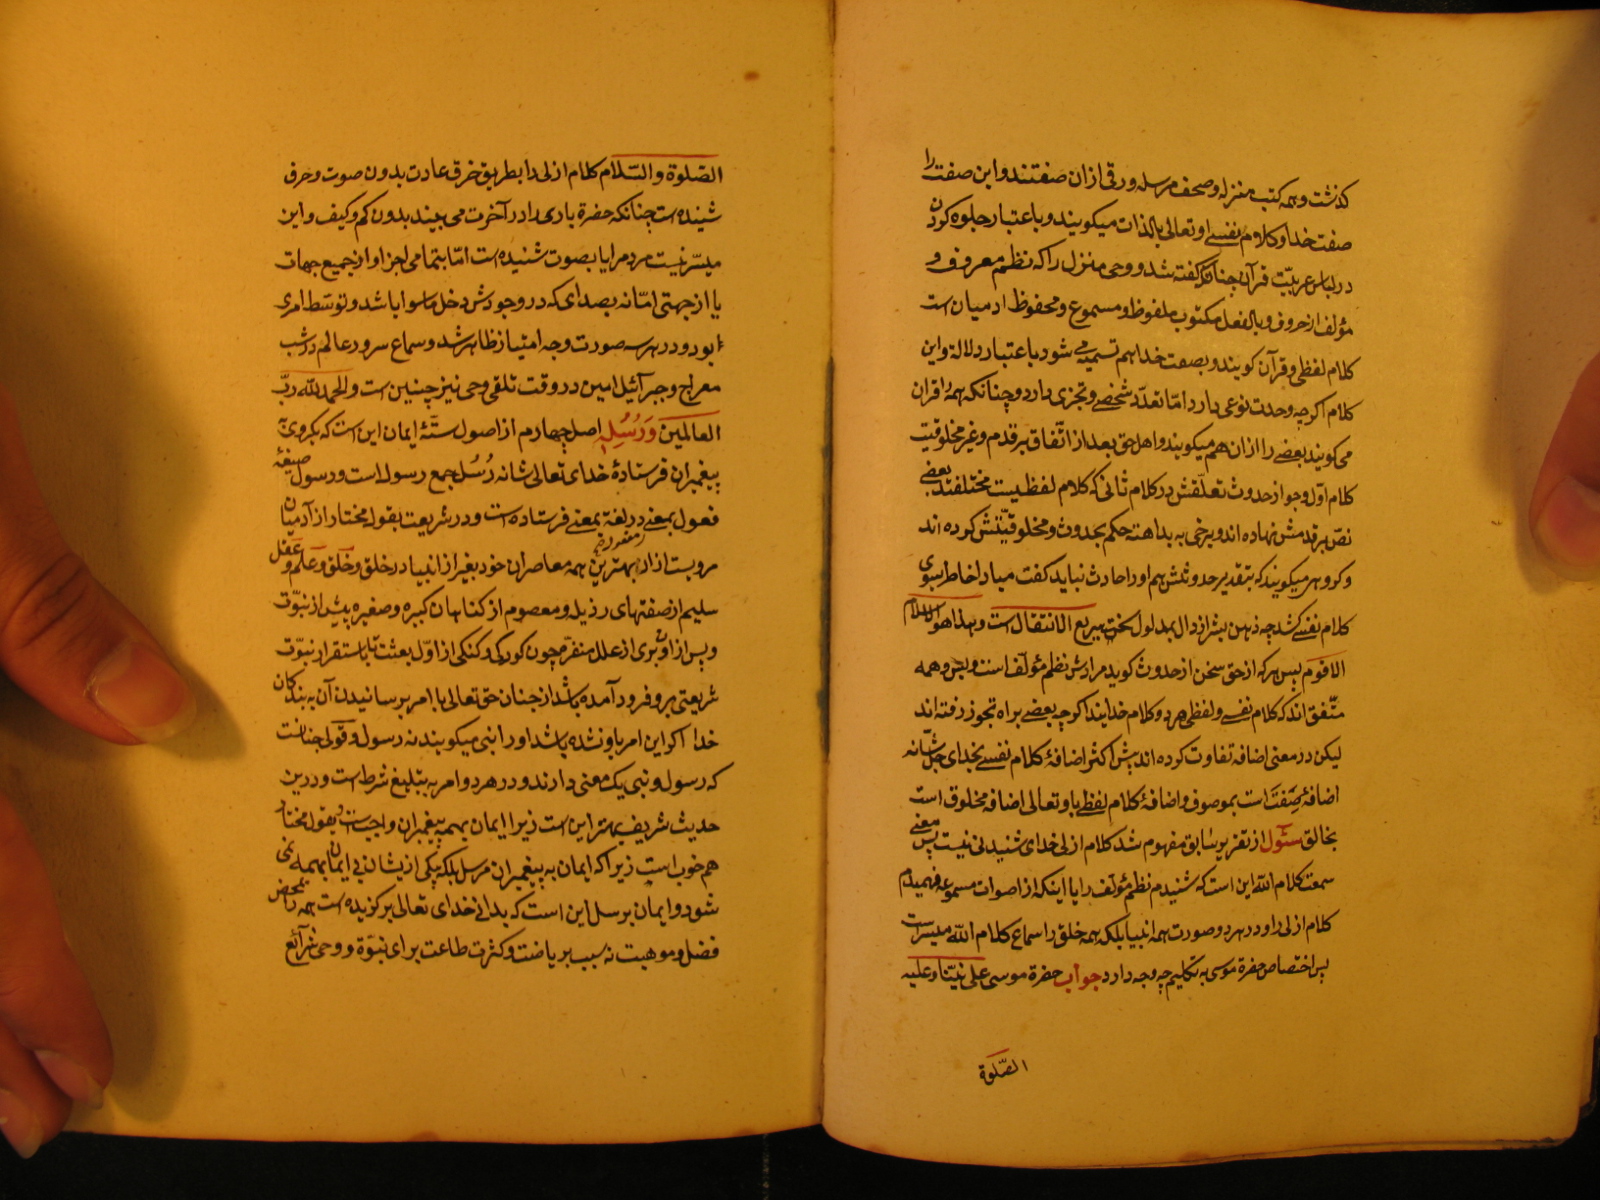 کذشت و همه کتب منزله و صحف مرسله ورقی از ان صفتند و این صفت را
صفت خدا و کلام نفسی او تعالی بالذات میکویند و باعتبار جلوه کردن
در لباس عربیّت قرآن چنانکه کفته شد و وحی منزل را که نظم معروف و
مؤلف از حروف و بالفعل مکتوب ملفوظ و مسموع و محفوظ ادمیان است
کلام لفظی و قرآن کویند و بصفت خدا هم تسمیه می شود باعتبار دلالة و این
کلام اکرچه وحدت نوعی دارد امّا تعدّد شخصی و تجزی دارد و چنانکه همهٔ را قران
می کویند بعضی را از ان هم میکویند و اهل حق بعد از اتّفاق بر قدم و غیر مخلوقیت
کلام اوّل و جواز حدوث تعلّقش در کلام ثانی که کلام لفظیست مختلفند بعضی
نصّ بر قدمش نهاده اند و برخی به بداهت حکم بحدوث و مخلوقیّتش کرده اند
و کروهی میکویند که بتقدیر حدوثش هم او را حادث نباید کفت مبادا خاطر بسوی
کلام نفسی کشد چه ذهن بشر از دال بمدلول سریع الانتقال است و هذا هو الکلام
الاقوم پس هرکه از حق سخن از حدوث کوید مرادش نظم مؤلّف است و بس و همه
متّفق اند که کلام نفسی و لفظی هر دو کلام خدایند اکرچه بعضی براه تجوز رفته اند
لیکن در معنی اضافه تفاوت کرده اند پیش اکثر اضافهٔ کلام نفسی بخدای جلّ شانه
اضافهٔ صِفتَ است بموصوف و اضافهٔ کلام لفظی باو تعالی اضافه مخلوق است
بخالق سئول از تقریر سابق مفهوم شد کلام ازلی خدای شنیدنی نیست پس معنی
سمعت کلام الله این است که شنیدم نظم مؤلف را یا اینکه از اصوات مسموعه فهمیدم
کلام ازلی را و در هر دو صورت همه انبیا بلکه همه خلق را سماع کلام الله میسر است
پس اختصاص حضرة موسی به تکلیم چه وجه دارد جواب حضرة موسی علی نبیّنا و علیه
الصّلوة
الصّلوة والسّلام کلام ازلی را بطریق خرق عادت بدون صوت و حرف
شنیده است چنانکه حضرة باری را در آخرت می بیند بدون کم و کیف و این
میسّر نیست مردم را یا بصوت شنیده است امّا بتمامی اجزا و از جمیع جهات
یا از جهتی امّا نه بصدای که در وجودش دخل ماسوا باشد و توسّط امری
بود و در هر سه صورت وجه امتیاز ظاهر شد و سماع سرور عالم در شب
معراج و جبرآئیل امین در وقت تلقی وحی نیز چنین است والحمد لله ربّ
العالمین وَرُسُلِهِ اصل چهارم از اصول ستّهٔ ایمان این است که بکروی
پیغمبران فرستادهٔ خدای تعالی شانه رُسُل جمع رسول است و رسول صیغهٔ
فعول بمعنی در لغة بمعنی فرستاده است و در شریعت بقول مختار از آدمیان
مردیست ازاد بهترین همه معاصران خود بغیر از انبیا در خلق و خَلق و عِلم و عقل
سلیم از صفتهای رذیله و معصوم از کناهان کبیره و صغیره پیش از نبوّت
و پس از او و بری از علل منفره چون کوری و کنکی از اوّل بعثت تا باستقرار نبوّت
شریعتی برو فرود آمده باشد از جناب حق تعالی با امر برسانیدن آن به بندکان
خدا اکر این امر باو نشده باشد او را نبی میکویند نه رسول و قولی چنانست
که رسول و نبی یک معنی دارند و در هر دو امر به تبلیغ شرط است و درین
حدیث شریف بهتر این است زیرا ایمان بهمه پیغمبران واجبست و بقول مختار
هم خوب است زیرا که ایمان به پیغمبران مرسل بلکه بیکی از یشان بی ایمان بهمه نمی
شود و ایمان برسل این است که بدانی خدای تعالی برکزیده است همه را بمحض
فضل و موهبت نه بسبب ریاضت و کثرت طاعت برای نبوّة و وحی شرآئع